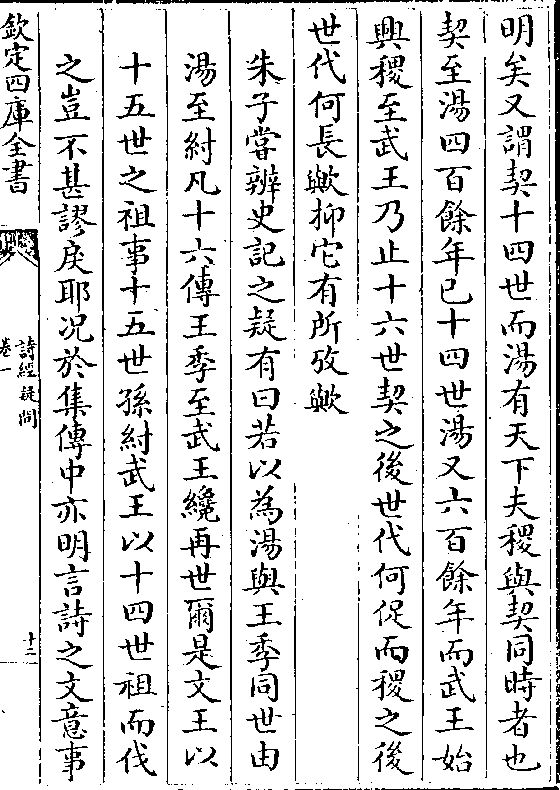 明矣又謂契十四世而湯有天下夫稷與契同時者也
契至湯四百餘年已十四世湯又六百餘年而武王始
興稷至武王乃止十六世契之後世代何促而稷之後
世代何長歟抑它有所攷歟
朱子嘗辨史記之疑有曰若以為湯與王季同世由
湯至紂凡十六傳王季至武王纔再世爾是文王以
十五世之祖事十五世孫紂武王以十四世祖而伐
之豈不甚謬戾耶况於集傳中亦明言詩之文意事
欽定四庫全書
詩經疑問
卷一
十二